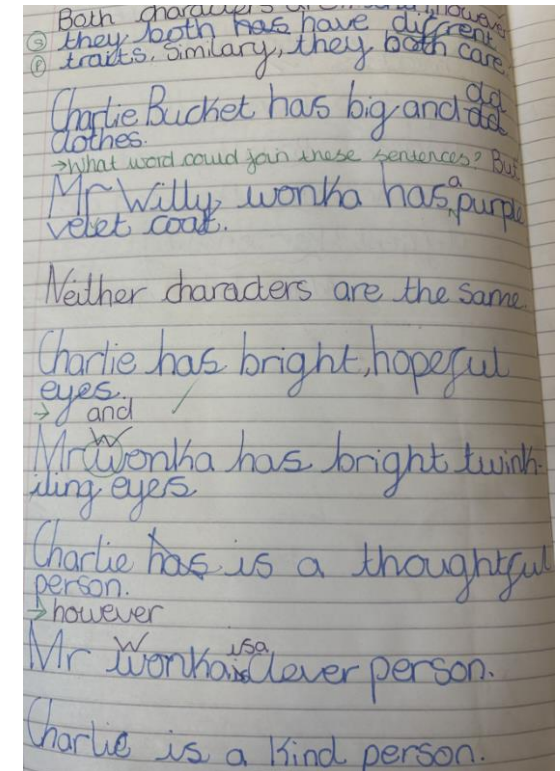 Both characters however
Ⓢ they both has have different
Ⓟ traits. Similary, they both care.
Charlie Bucket has big and old
clothes.
→What word could join these sentences? But
Mr Willy wonka has a purple
velet coat.
Neither characters are the same.
Charlie has bright, hopeful
eyes.
→ and ✓
Mr Wonka has bright twink-
iling eyes.
Charlie has is a thoughtful
person.
→however
Mr Wonka is a clever person.
Charlie is a kind person.